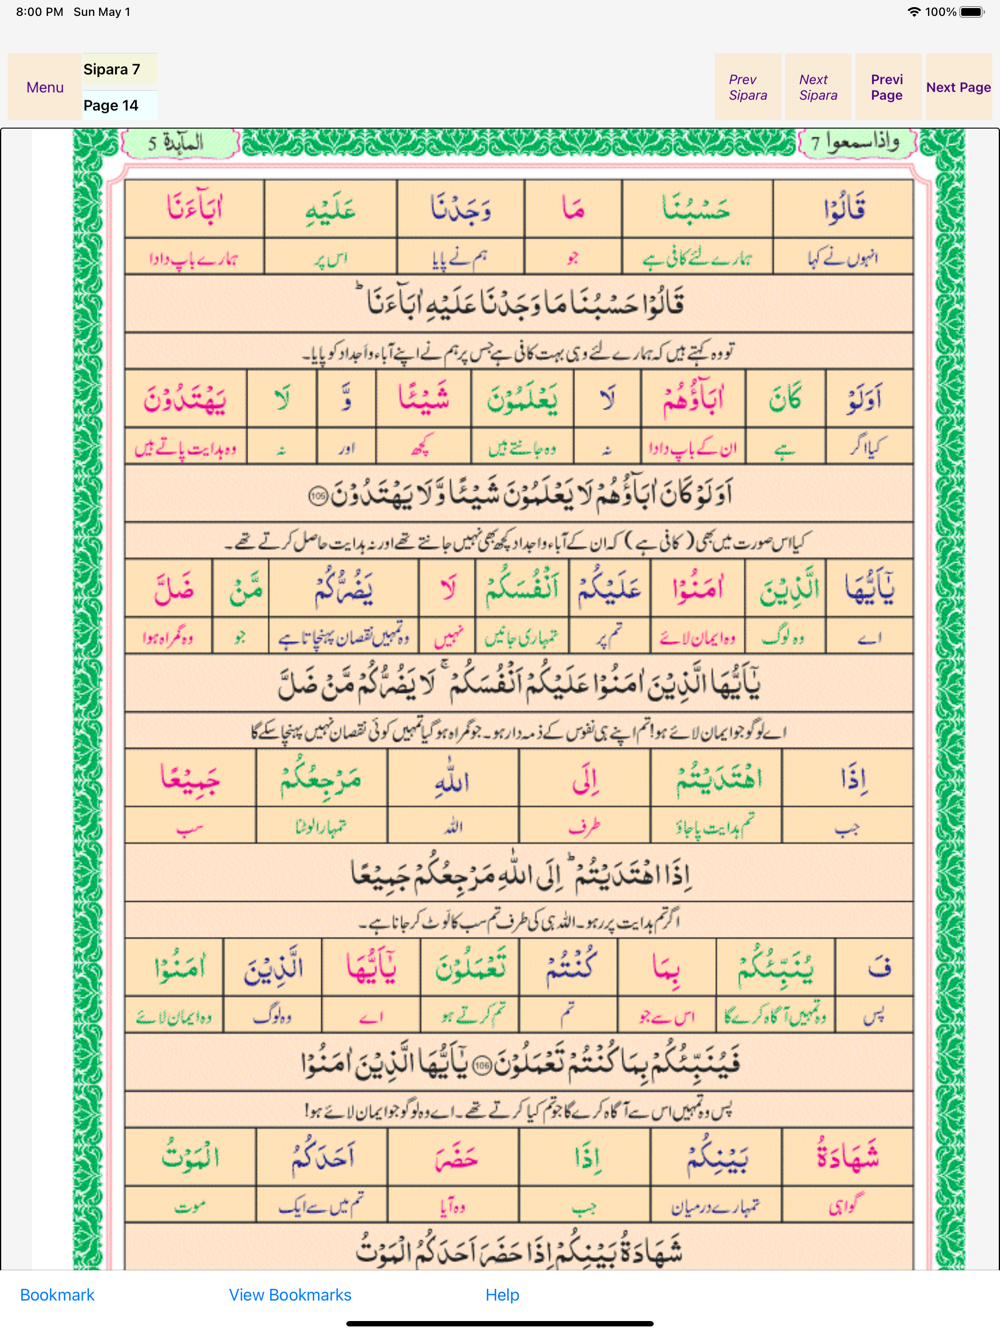 8:00 PM Sun May 1 100%
Menu
Sipara 7
Page 14
Prev Sipara
Next Sipara
Previ Page
Next Page
واذاسمعوا 7 المآىِٕدة 5
قَالُوْا حَسْبُنَا مَا وَجَدْنَا عَلَيْهِ اٰبَآءَنَا
انہوں نے کہا ہمارے لئے کافی ہے جو ہم نے پایا اس پر ہمارے باپ دادا
قَالُوْا حَسْبُنَا مَا وَجَدْنَا عَلَيْهِ اٰبَآءَنَا ؕ
تو وہ کہتے ہیں کہ ہمارے لئے وہی بہت کافی ہے جس پر ہم نے اپنے آباء و اَجداد کو پایا۔
اَوَلَوْ كَانَ اٰبَآؤُهُمْ لَا يَعْلَمُوْنَ شَيْـًٔا وَّ لَا يَهْتَدُوْنَ
کیا اگر ہے ان کے باپ دادا نہ وہ جانتے ہیں کچھ اور نہ وہ ہدایت پاتے ہیں
اَوَلَوْ كَانَ اٰبَآؤُهُمْ لَا يَعْلَمُوْنَ شَيْـًٔا وَّ لَا يَهْتَدُوْنَ 105
کیا اس صورت میں بھی ( کافی ہے ) کہ ان کے آباء و اجداد کچھ بھی نہیں جانتے تھے اور نہ ہدایت حاصل کرتے تھے۔
يٰۤاَيُّهَا الَّذِيْنَ اٰمَنُوْا عَلَيْكُمْ اَنْفُسَكُمْ لَا يَضُرُّكُمْ مَّنْ ضَلَّ
اے وہ لوگ وہ ایمان لائے تم پر تمہاری جانیں نہیں وہ تمہیں نقصان پہنچاتا ہے جو وہ گمراہ ہوا
يٰۤاَيُّهَا الَّذِيْنَ اٰمَنُوْا عَلَيْكُمْ اَنْفُسَكُمْ ۚ لَا يَضُرُّكُمْ مَّنْ ضَلَّ
اے لوگو جو ایمان لائے ہو! تم اپنے ہی نفوس کے ذمہ دار ہو۔ جو گمراہ ہو گیا تمہیں کوئی نقصان نہیں پہنچا سکے گا
اِذَا اهْتَدَيْتُمْ اِلَى اللّٰهِ مَرْجِعُكُمْ جَمِيْعًا
جب تم ہدایت پا جاؤ طرف اللہ تمہارا لوٹنا سب
اِذَا اهْتَدَيْتُمْ ؕ اِلَى اللّٰهِ مَرْجِعُكُمْ جَمِيْعًا
اگر تم ہدایت پر رہو۔ اللہ ہی کی طرف تم سب کا لَوٹ کر جانا ہے۔
فَ يُنَبِّئُكُمْ بِمَا كُنْتُمْ تَعْمَلُوْنَ يٰۤاَيُّهَا الَّذِيْنَ اٰمَنُوْا
پس وہ تمہیں آگاہ کرے گا اس سے جو تم تم کرتے ہو اے وہ لوگ وہ ایمان لائے
فَيُنَبِّئُكُمْ بِمَا كُنْتُمْ تَعْمَلُوْنَ 106 يٰۤاَيُّهَا الَّذِيْنَ اٰمَنُوْا
پس وہ تمہیں اس سے آگاہ کرے گا جو تم کیا کرتے تھے۔ اے وہ لوگو جو ایمان لائے ہو!
شَهَادَةُ بَيْنِكُمْ اِذَا حَضَرَ اَحَدَكُمُ الْمَوْتُ
گواہی تمہارے درمیان جب وہ آیا تم میں سے ایک موت
شَهَادَةُ بَيْنِكُمْ اِذَا حَضَرَ اَحَدَكُمُ الْمَوْتُ
Bookmark View Bookmarks Help